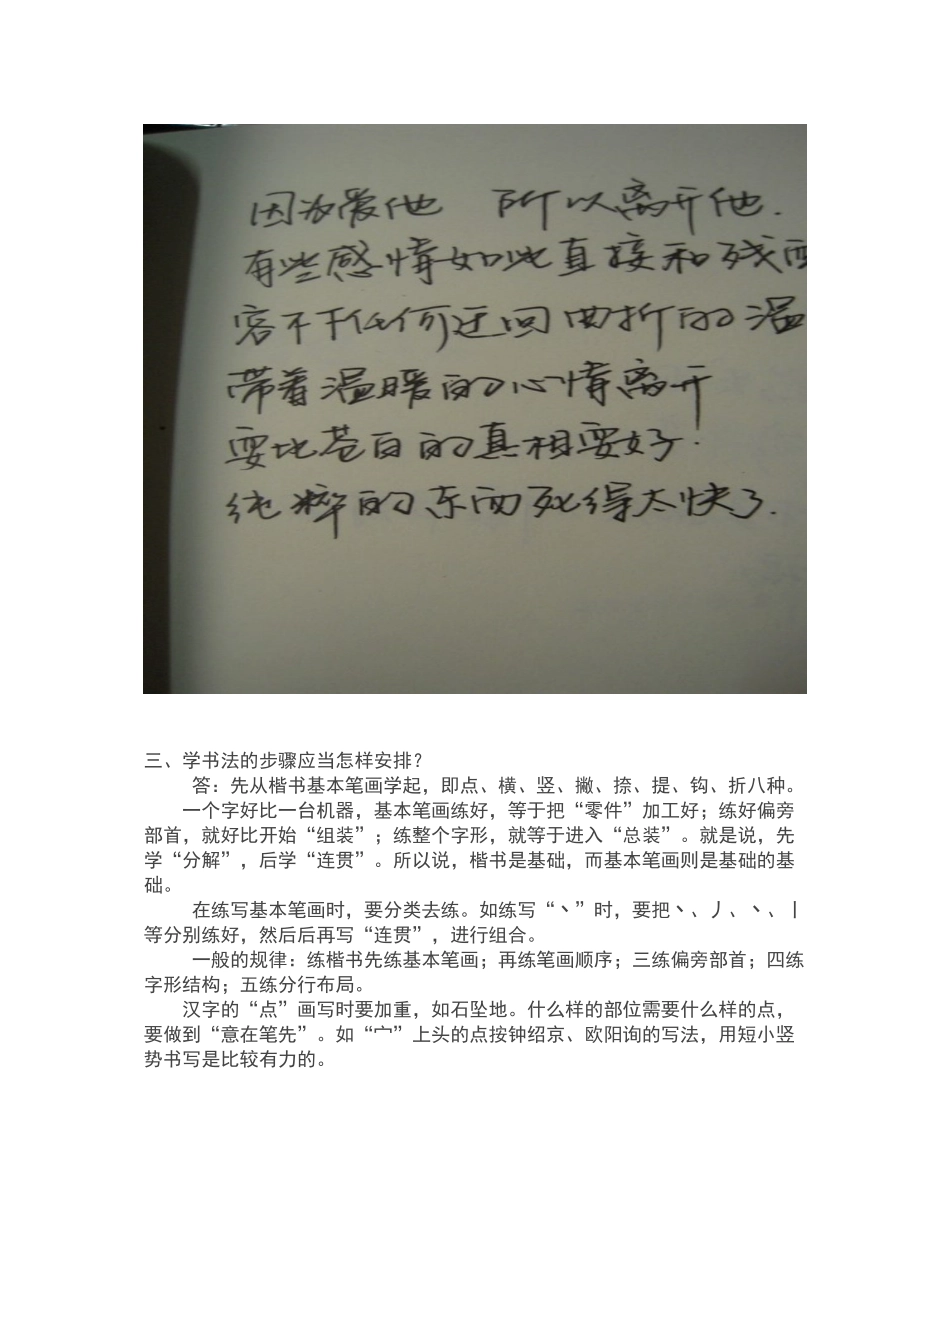 因为爱他 所以离开他.
有些感情如此直接和残
容不下任何迂回曲折的温
带着温暖的心情离开
要比苍白的真相要好!
纯粹的东西死得太快了.
三、学书法的步骤应当怎样安排?
答:先从楷书基本笔画学起,即点、横、竖、撇、捺、提、钩、折八种。
一个字好比一台机器,基本笔画练好,等于把“零件”加工好;练好偏旁
部首,就好比开始“组装”;练整个字形,就等于进入“总装”。就是说,先
学“分解”,后学“连贯”。所以说,楷书是基础,而基本笔画则是基础的基
础。
在练写基本笔画时,要分类去练。如练写“丶”时,要把丶、丿、丶、丨
等分别练好,然后后再写“连贯”,进行组合。
一般的规律:练楷书先练基本笔画;再练笔画顺序;三练偏旁部首;四练
字形结构;五练分行布局。
汉字的“点”画写时要加重,如石坠地。什么样的部位需要什么样的点,
要做到“意在笔先”。如“宀”上头的点按钟绍京、欧阳询的写法,用短小竖
势书写是比较有力的。